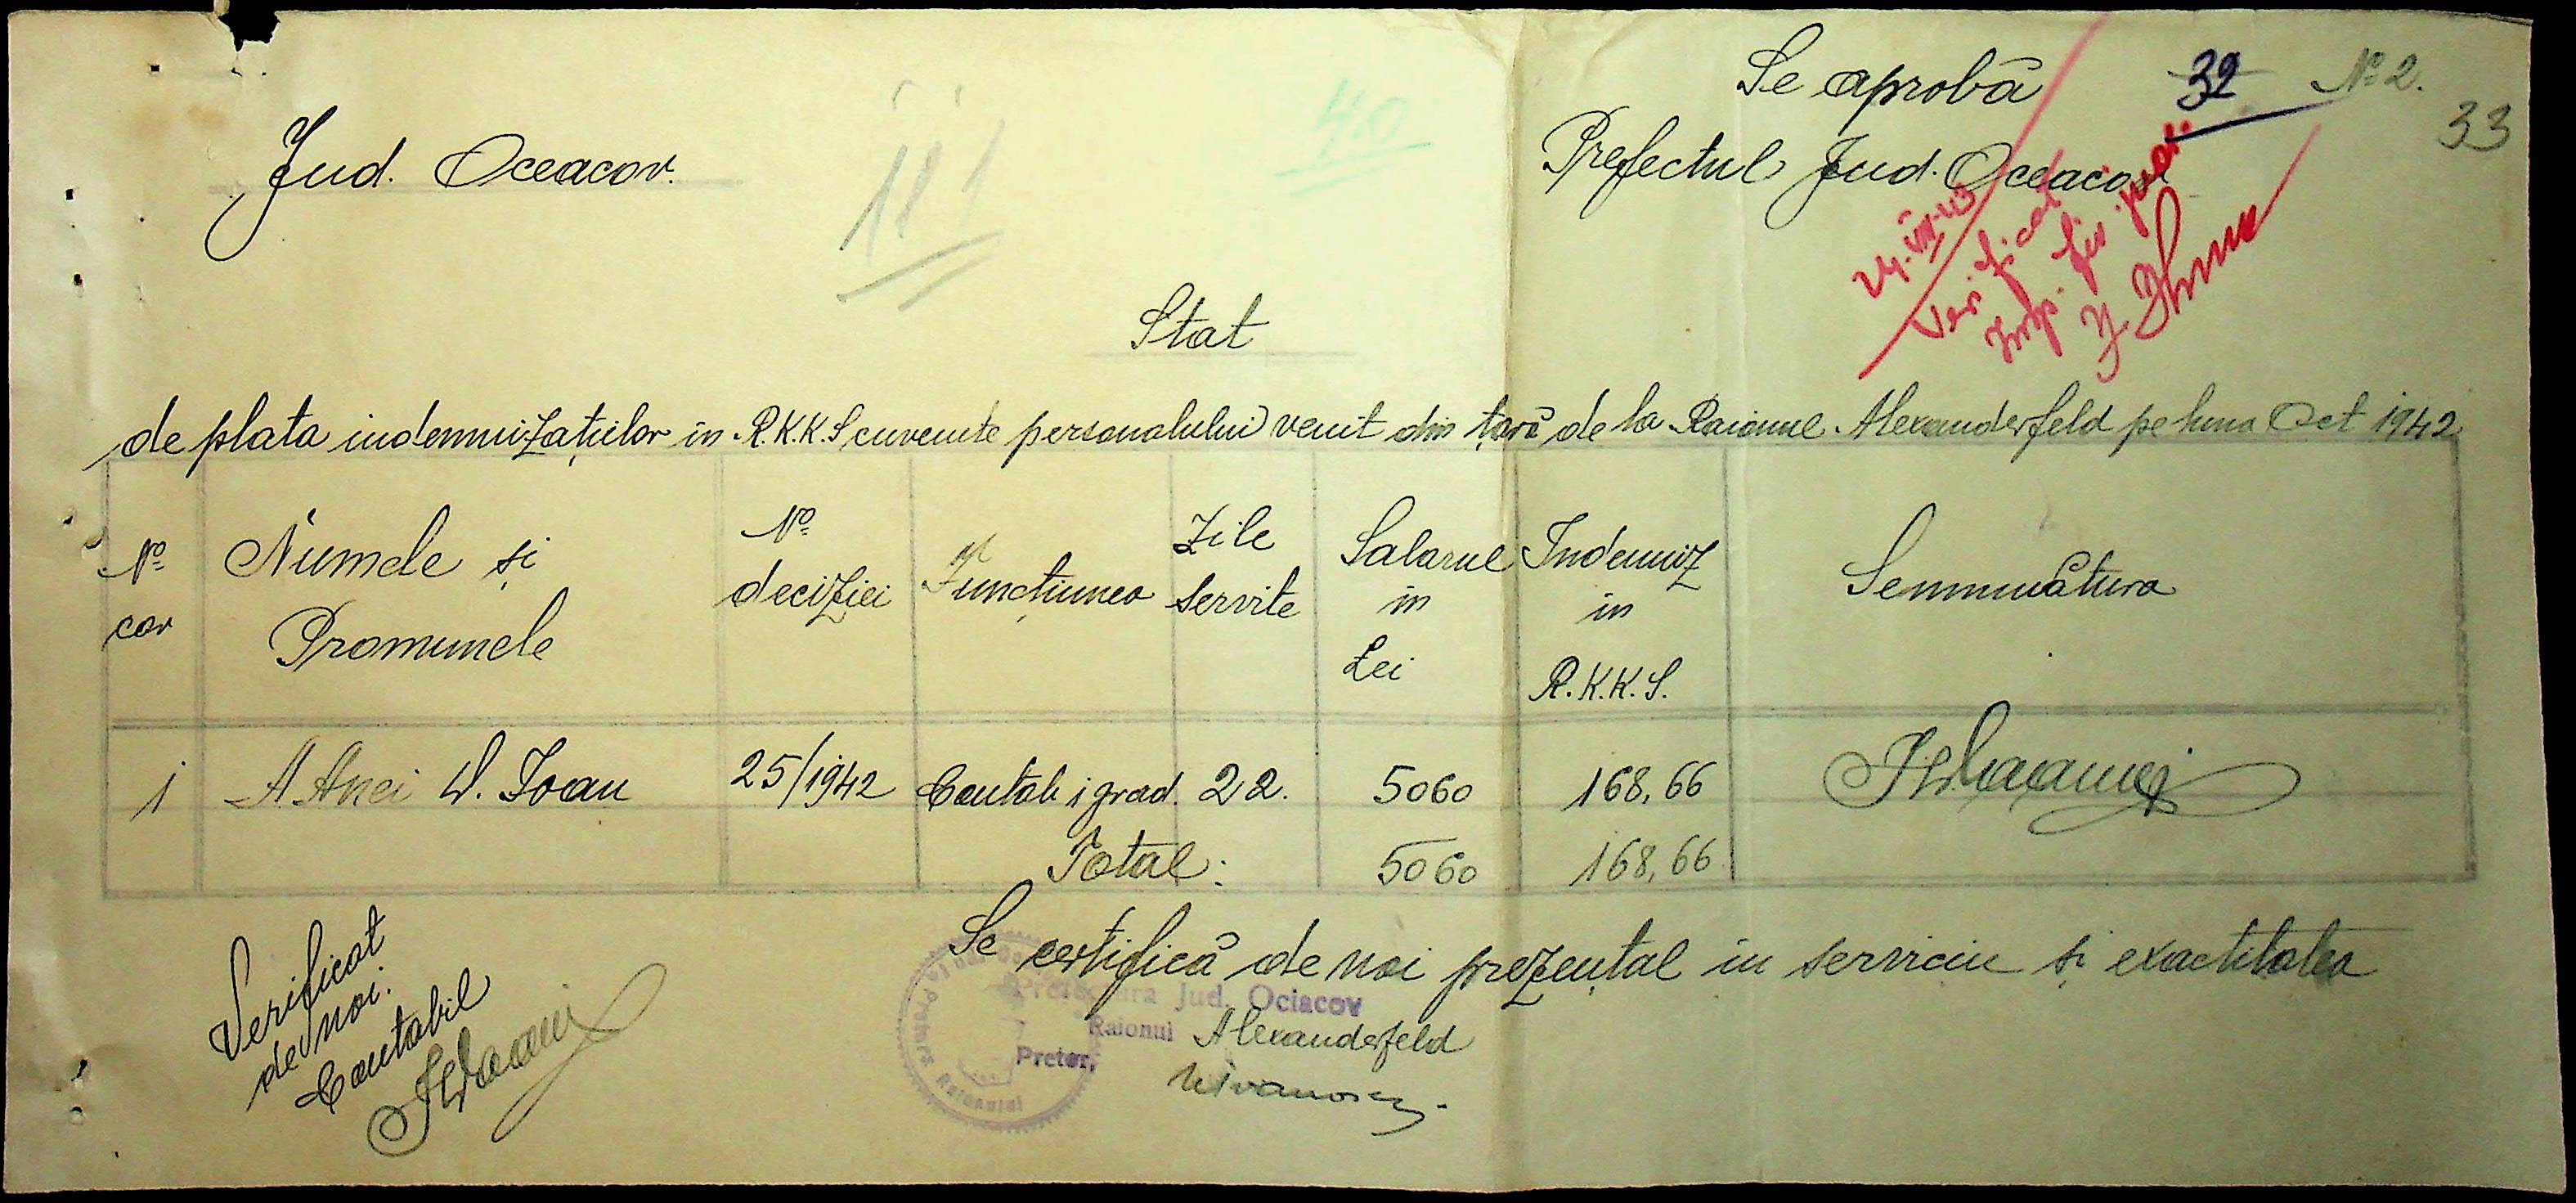 Se aprobă 32 No 2.
33
Jud. Oceacov.
Prefectul Jud. Oceacov
181
40
24.VIII.43
Verificat
Imp.
Stat
de plata indemnizațiilor in R.K.K.S cuvenite personalului venit din țară de la Raionul Alexanderfeld pe luna Oct 1942
No cor | Numele și Pronumele | No deciziei | Funcțiunea | Zile servite | Salarul in Lei | Indemniz in R.K.K.S. | Semnnătura
1 | A Anei V. Ioan | 25/1942 | Contab 1 grad. | 22. | 5060 | 168,66
Total: 5060 168,66
Se certifică de noi prezental in serviciu și exactitatea
Prefectura Jud. Ociacov
Raionul Alexanderfeld
Pretor,
Verificat
de noi.
Contabil